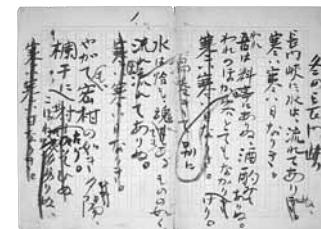 冬の長門峡
長門峡に水は、流れてあり
寒い寒い日なりき。
吾は料亭にありぬ、酒酌みてありぬ。
われのほか客とてもなかり
寒い寒い日なりき。
別に
水は恰も魂あるものの如く
流れ流れてありぬ。
寒い寒い日なりき。
やがて密柑の如き夕陽、
欄干に
寒い寒い日なりき。